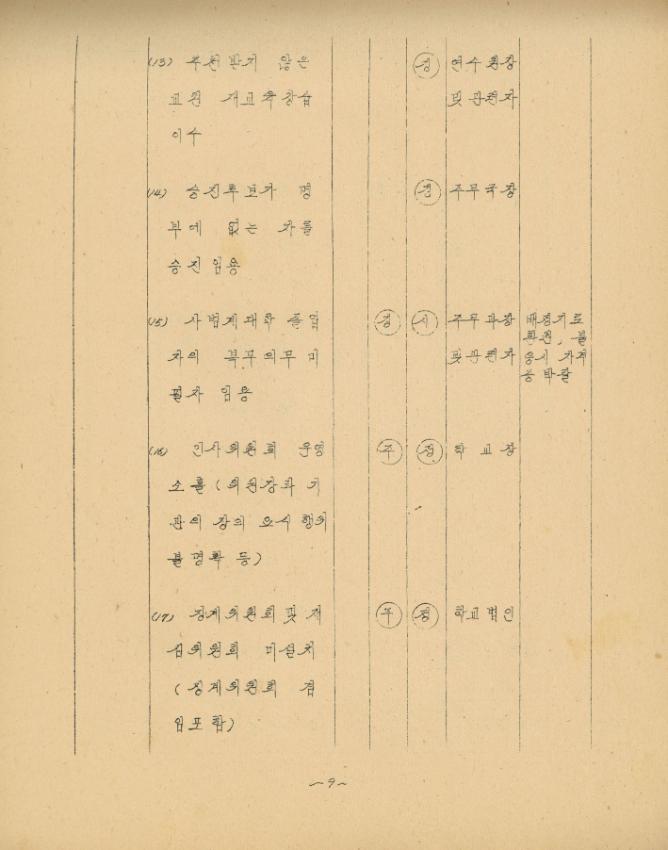 (13) 추천받지 않은 경 연수원장
교원 재교육강습 및 관련자
이수
(14) 승진후보자 명 경 주무국장
부에 없는 자를
승진임용
(15) 사범계대학 졸업 경 시 주무과장 배정기도
자의 복무의무 미 및 관련자
필자 임용 등 박탈
(16) 인사위원회 운영 주 경 학교장
소홀(위원장과 기
관의 장의 요시행의
불명확 등)
(17) 징계위원회 및 재 주 경 학교법인
심위원회 미설치
(징계위원회 겸
임포함)
-9-